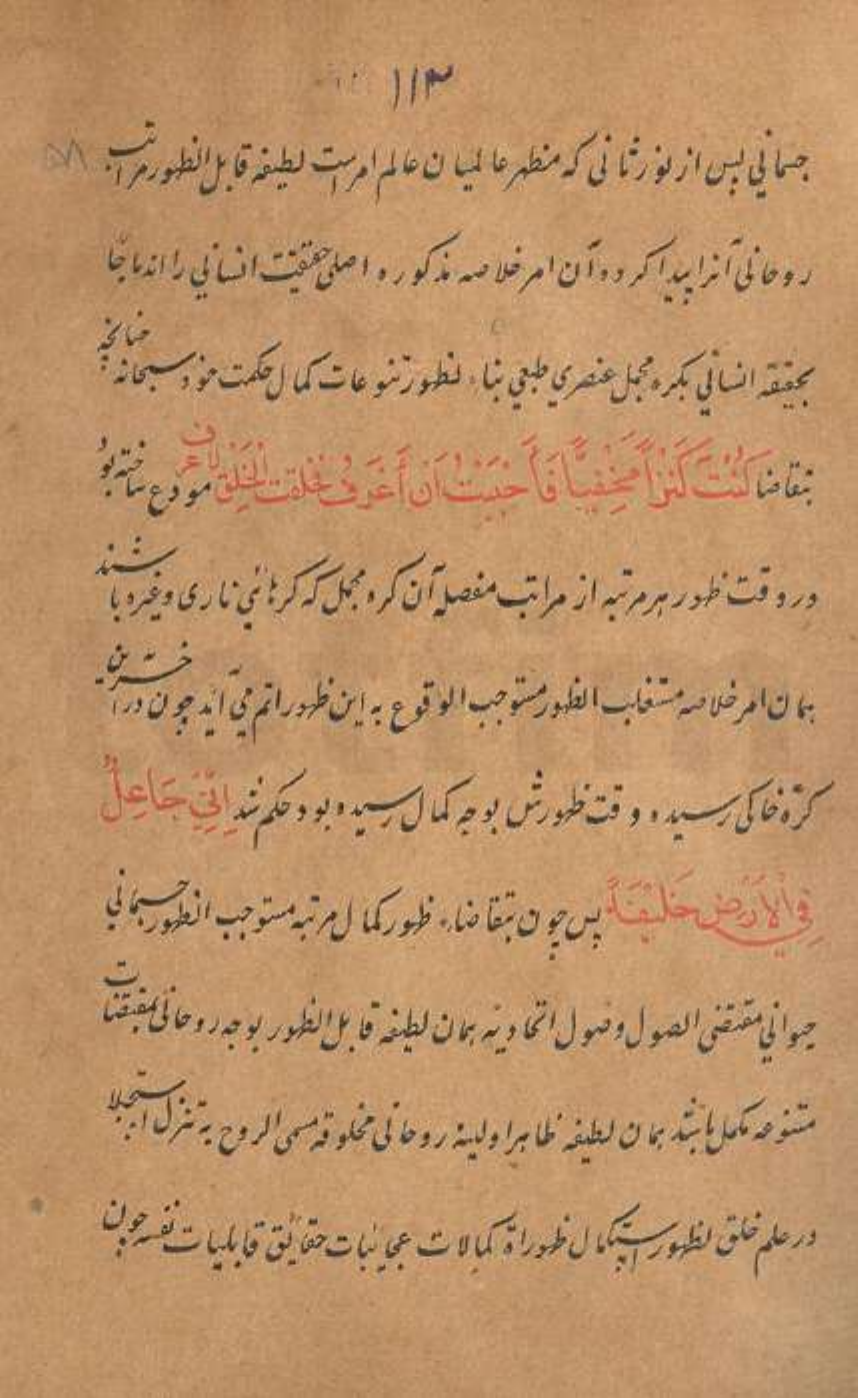 ۱۱۳
جسمانی پس از نور ثانی که مظهر عالمیان عالم امر است لطیفه قابل الظهور مراتب
روحانی آنرا پیدا کرده آن امر خلاصه مذکوره اصلی حقیقت انسانی را اندماجا
بحقیقه انسانی بکره مجمل عنصری طبعی بناء لظهور تنوعات کمال حکمت خود سبحانه چنانچه
بتقاضا كُنْتُ كَنْزاً مَخْفِيًّا فَأَحْبَبْتُ اَنْ أُعْرَفَ فخلقت الخَلْقَ لاعرف مودع ساخته بود
در وقت ظهور هر مرتبه از مراتب مفصله آن کره مجمل که کرهائی ناری وغیره باشند
بمان امر خلاصه الظهور مستوجب الوقوع به این ظهور اتم می آید چون در آخرین
کرّه خاکی رسیده وقت ظهورش بوجه کمال رسیده بود حکم شد اِنِّيْ جَاعِلٌ
فِي الْاَرْضِ خَلِيْفَةً پس چون بتقاضاء ظهور کمال مرتبه مستوجب الظهور جسمانی
حیوانی مقتضی الصول وصول اتحادیه بمان لطیفه قابل الظهور بوجه روحانی بمقتضات
متنوعه مکمل باشد بمان لطیفه ظاهرا ولینه روحانی مخلوقه مسمی الروح به تنزل استجلا
در علم خلق لظهور استکمال ظهوراة کمالات عجائبات حقائق قابلیات نفسه چون